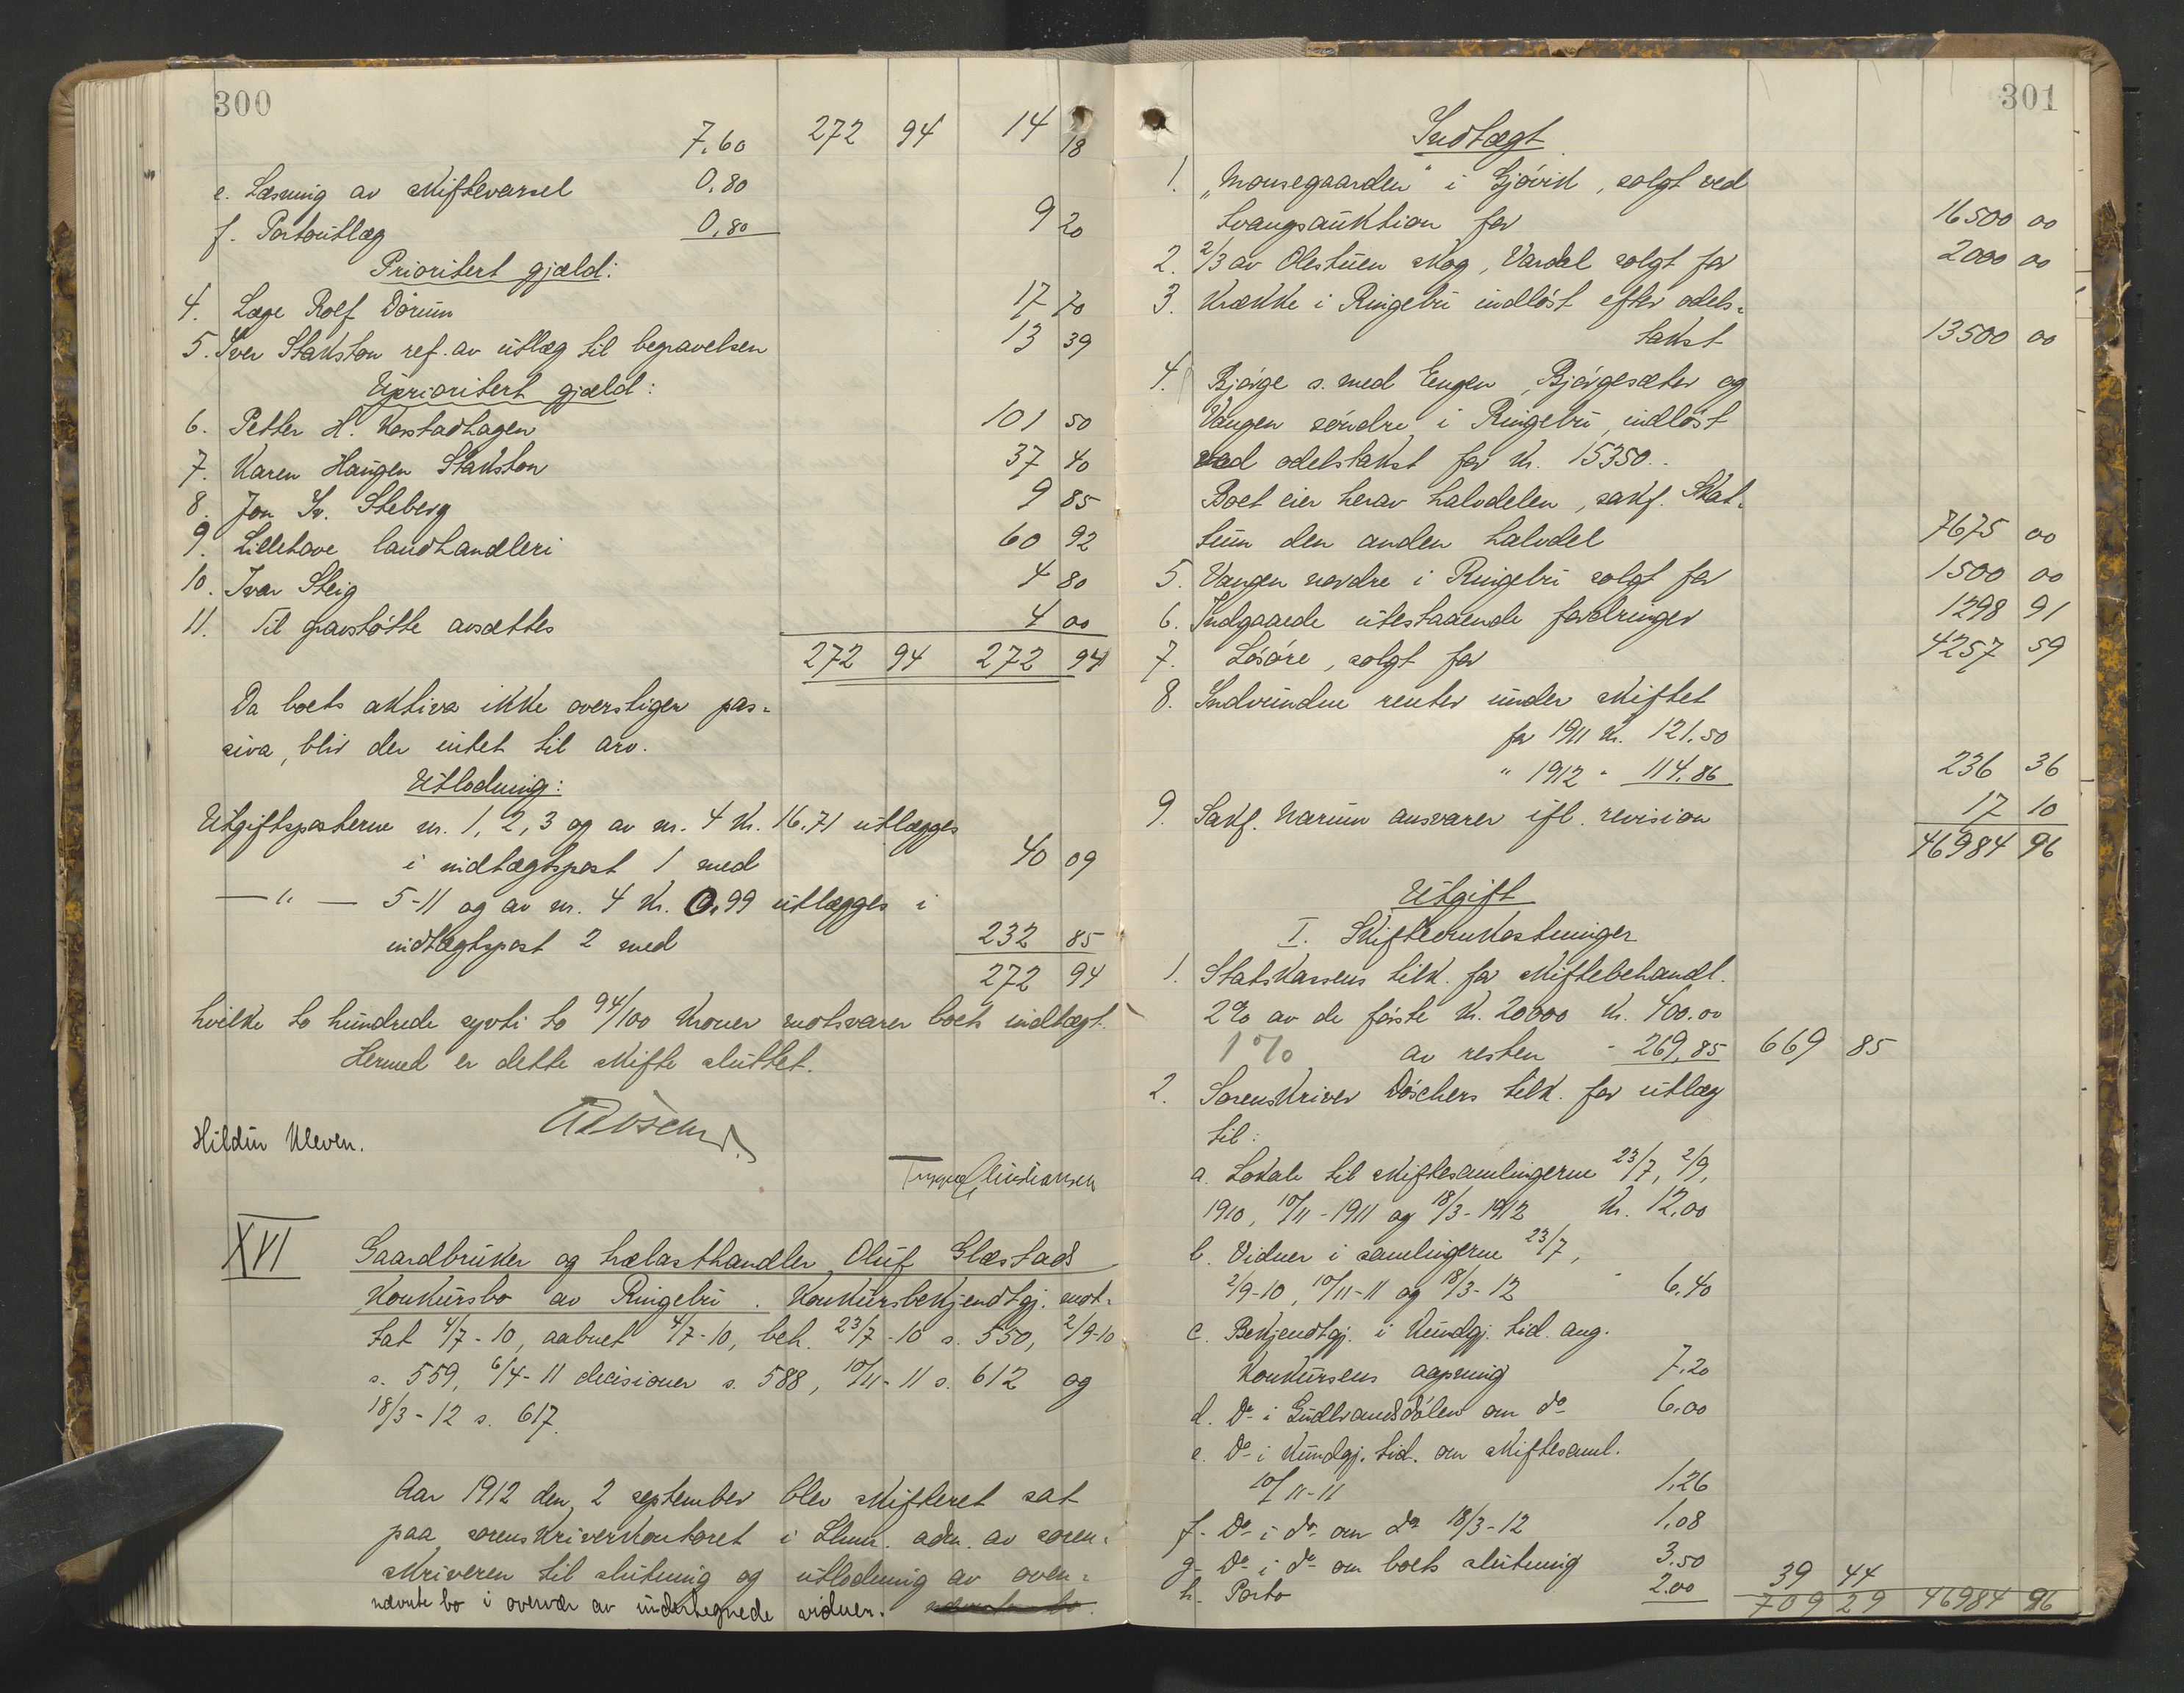 300
7,60 272 94 14 18
e. Læsning av skiftevarsel 0,80
f. Portoutlæg 0,80 9 20
Prioritert gjæld:
4. Læge Rolf Dørum 17 70
5. Iver Stakston ref. av utlæg til begravelsen 13 39
Uprioritert gjæld:
6. Petter H. Korstadhagen 101 50
7. Karen Haugen Stakston 37 40
8. Jon Iv. Steberg 9 85
9. Lillehove landhandleri 60 92
10. Ivar Steig 4 80
11. Til gravstøtte avsættes 4 00
272 94 272 94
Da boets aktiva ikke overstiger pas-
siva, blir der intet til arv.
Utlodning:
Utgiftsposterne nr. 1, 2, 3 og av nr. 4 kr. 16.71 utlægges
i indtægtspost 1 med 40 09
— " — 5-11 og av nr. 4 kr. 0,99 utlægges i
indtægtspost 2 med 232 85
272 94
hvilke to hundrede sytti to 94/100 kroner motsvarer boets indtægt.
Hermed er dette skifte sluttet.
Hildur Kleven.
Trygve Christiansen
XVI Gaardbruker og trælasthandler Oluf Glæstads
konkursbo av Ringebu. Konkursbekjendtgj. mot-
tat 4/7-10, aabnet 4/7-10, beh. 23/7-10 s. 550, 2/9-10
s. 559, 6/4-11 decisioner s. 588, 10/11-11 s. 612 og
18/3-12 s. 617.
Aar 1912 den 2 september blev skifteret sat
paa sorenskriverkontoret i Lhmr. adm. av soren-
skriveren til slutning og utlodning av oven-
nævnte bo i overvær av undertegnede vidner.
301
Indtægt
1. „Monsegaarden" i Gjøvik, solgt ved
tvangsauktion for 16500 00
2. 2/3 av Olestuen skog, Vardal solgt for 2000 00
3. Krække i Ringebu indløst efter odels-
takst 13500 00
4. Bjørge s. med Engen, Bjørgesæter og
Vangen søndre i Ringebu, indløst
ved odelstakst for kr. 15350..
Boet eier herav halvdelen, sakf. Skat-
tum den anden halvdel 7675 00
5. Vangen nordre i Ringebu solgt for 1500 00
6. Indgaaede utestaaende fordringer 1298 91
7. Løsøre, solgt for 4257 59
8. Indvundne renter under skiftet
for 1911 kr. 121.50
" 1912 " 114,86 236 36
9. Sakf. Narum ansvarer ifl. revision 17 10
46984 96
Utgift
I. Skifteomkostninger
1. Statskassens tilk. for skiftebehandl.
2% av de første kr. 20000 kr. 400.00
1% av resten " 269,85 669 85
2. Sorenskriver Døschers tilk. for utlæg
til:
a. Lokale til skiftesamlingerne 23/7, 2/9,
1910, 10/11-1911 og 18/3-1912 kr. 12,00
b. Vidner i samlingerne 23/7,
2/9-10, 10/11-11 og 18/3-12 " 6.40
c. Bekjendtgj. i Kundgj. tid. ang.
konkursens aapning 7.20
d. Do i Gudbrandsdølen om do 6.00
e. Do i Kundgj. tid. om skiftesaml.
10/11-11 1,26
f. Do i do om do 18/3-12 1,08
g. Do i do om boets slutning 3.50
h. Porto 2.00 39 44
709 29 46984 96